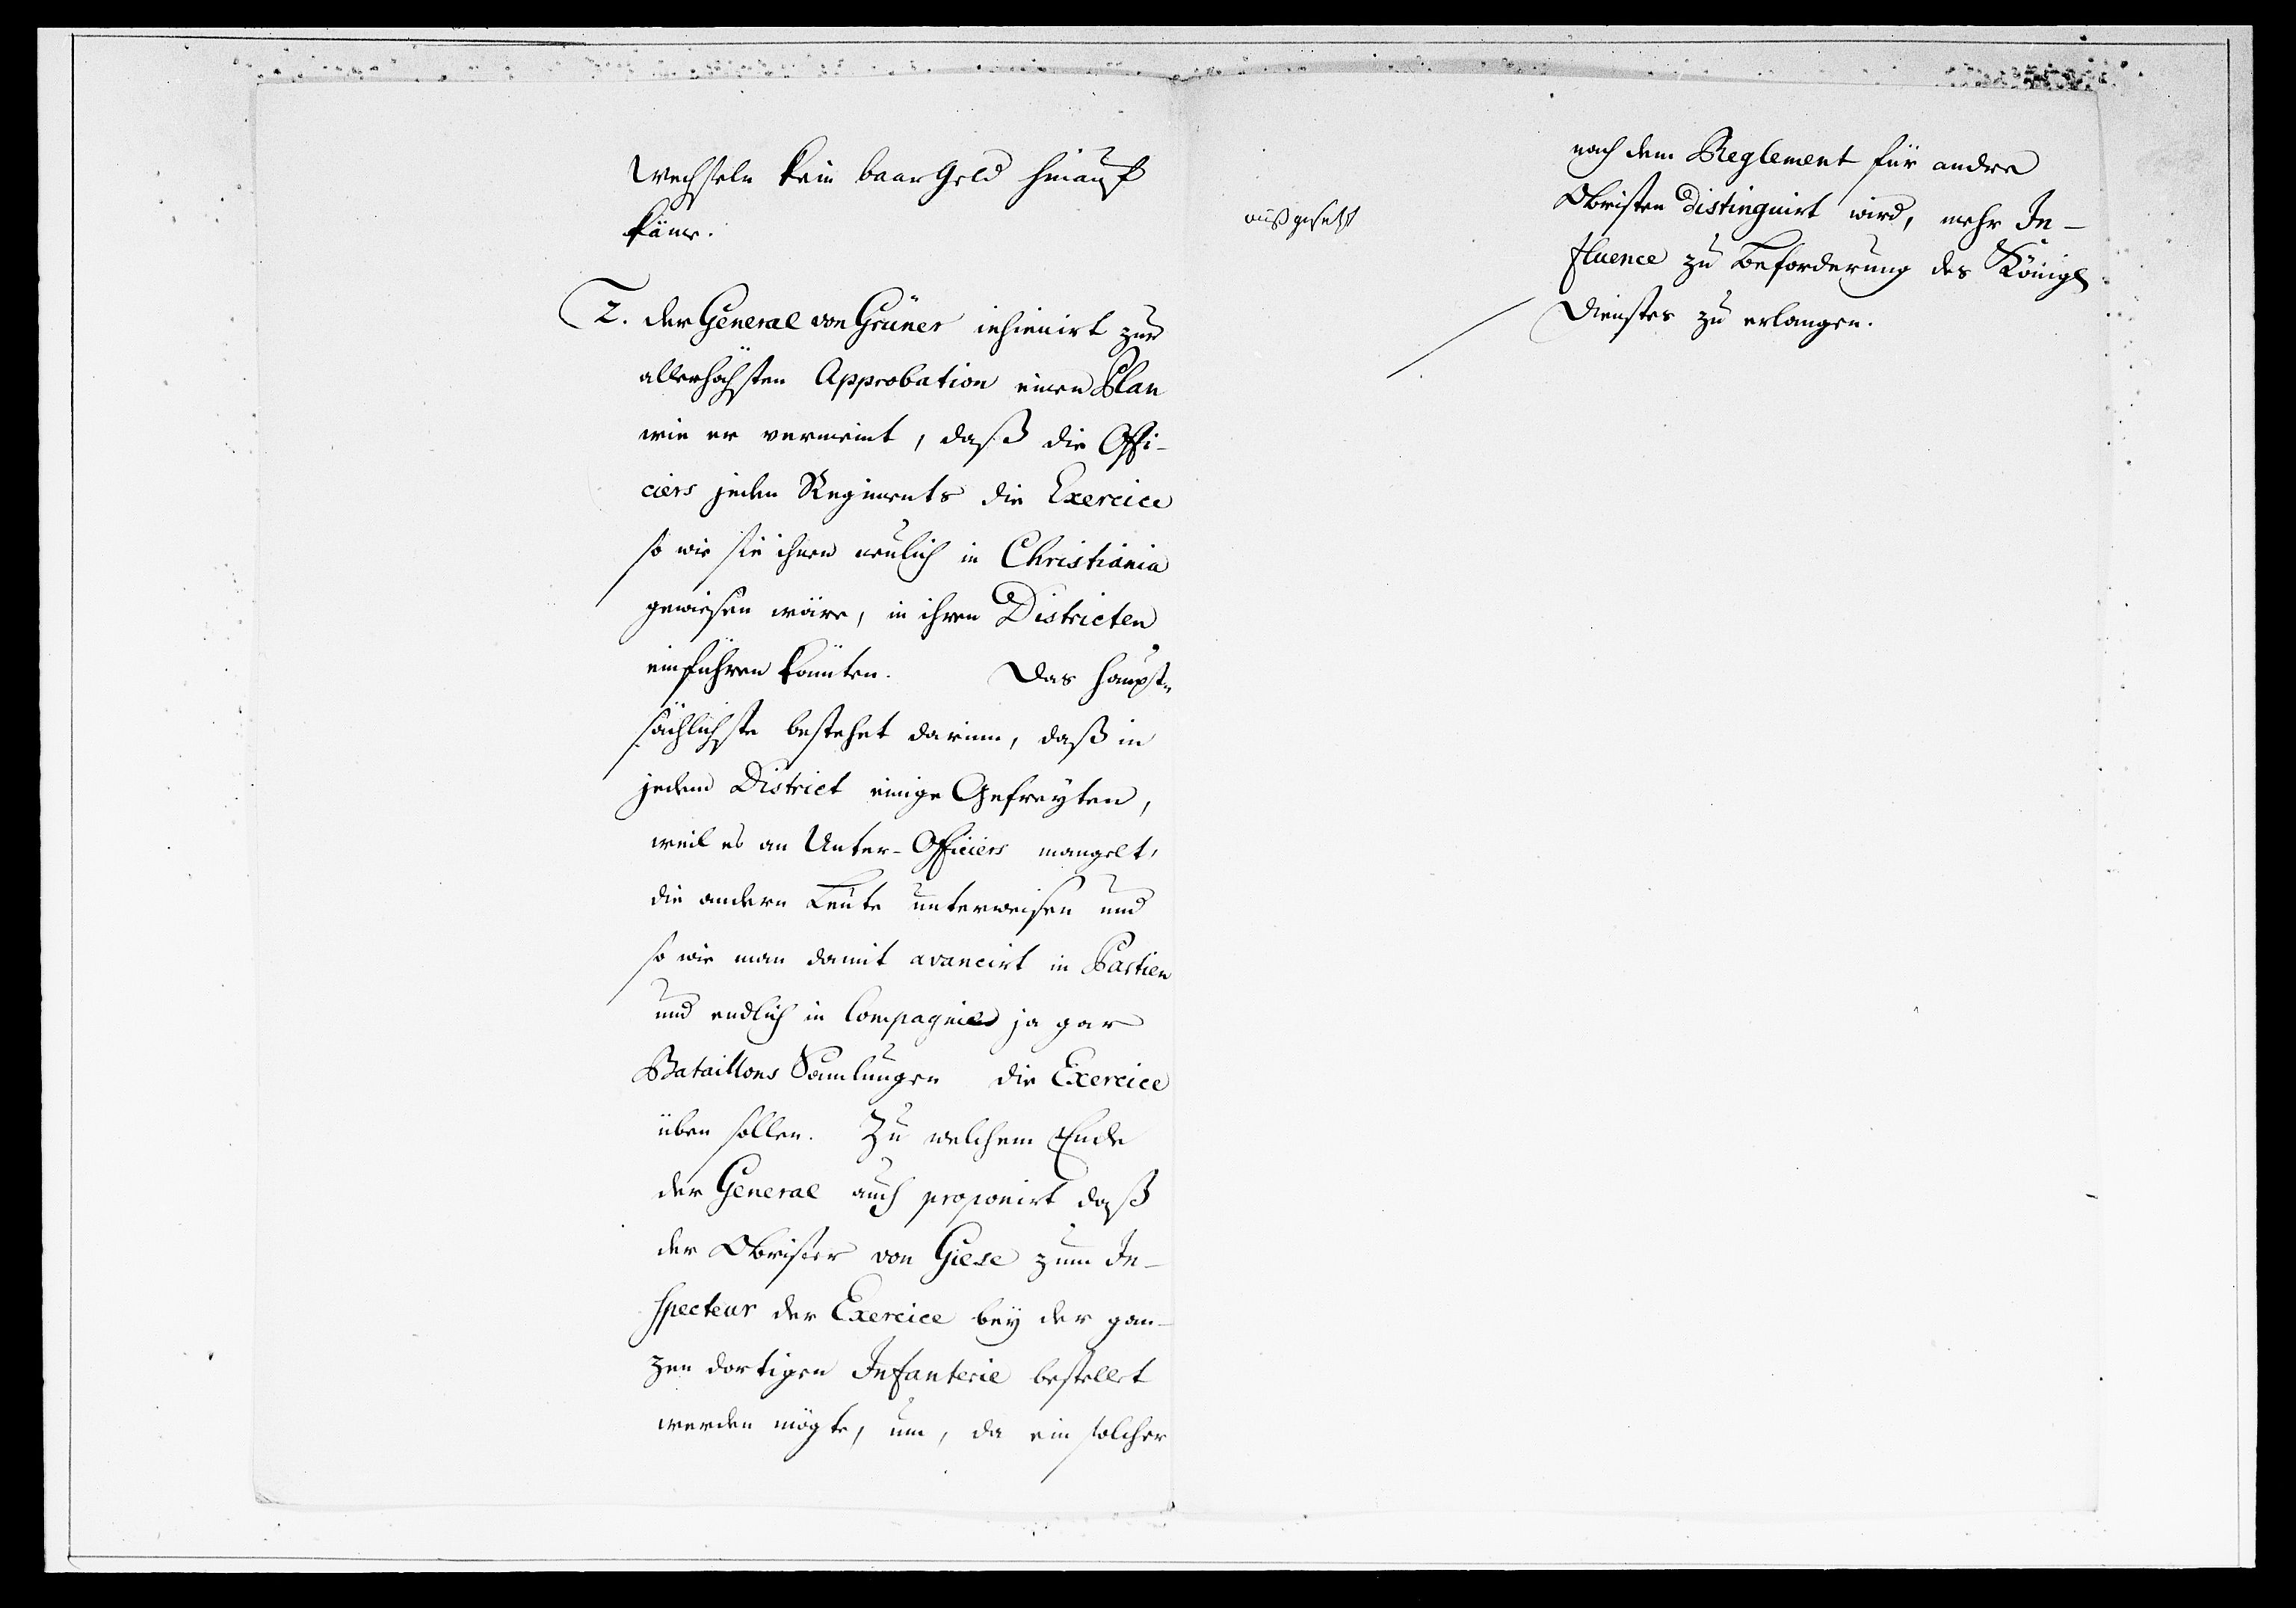 Wechseln kein baar Geld hinauf
käme.
2. der General von Grüner insinuirt zur
allerhöchsten Approbation einen Plan
wie er vermeint, daß die Offi-
ciers jeden Regiments die Exercice
so wie sie ihnen neulich in Christiania
gewiesen wäre, in ihren Districten
einführen könten. Das haupt-
sächlichste bestehet darinn, daß in
jedem District einige Gefreyten,
weil es an Unter-Officiers mangelt,
die andern Leute unterweisen und
so wie man damit avancirt in Partien
und endlich in Compagnie ja gar
Bataillons Samlungen die Exercice
üben sollen. Zu welchem Ende
der General auch proponirt daß
der Obrister von Giese zum In-
specteur der Exercice bey der gan-
zen dortigen Infanterie bestellet
werden mögte, um, da ein solcher
ausgesetzt
nach dem Reglement für andre
Obristen distinguirt wird, mehr In-
fluence zu Beforderung des Königl.
Dienstes zu erlangen.